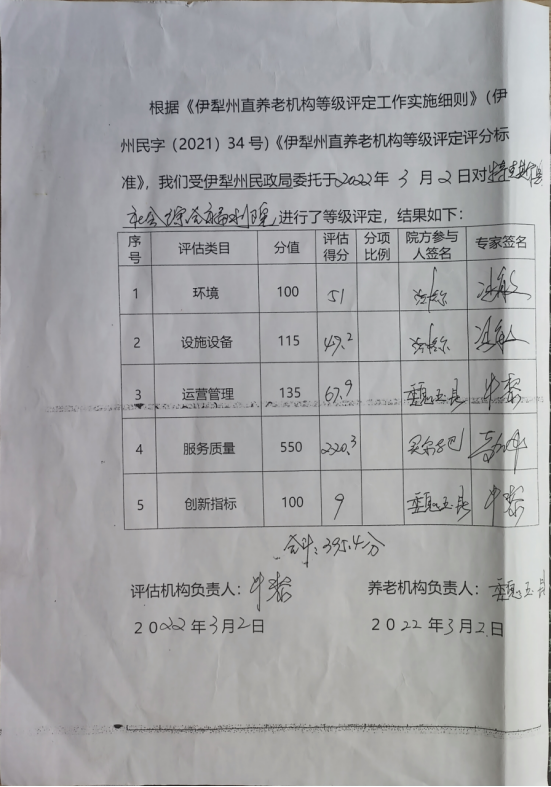 根据《伊犁州直养老机构等级评定工作实施细则》（伊
州民字（2021）34号）《伊犁州直养老机构等级评定评分标
准》，我们受伊犁州民政局委托于2022年 3 月 2 日对特克斯县
社会综合福利院进行了等级评定，结果如下：
序号 评估类目 分值 评估得分 分项比例 院方参与人签名 专家签名
1 环境 100 51
2 设施设备 115 47.2
3 运营管理 135 67.9
4 服务质量 550 220.3
5 创新指标 100 9
合计：395.4分
评估机构负责人： 养老机构负责人：
2022年3月2日 2022年3月2日